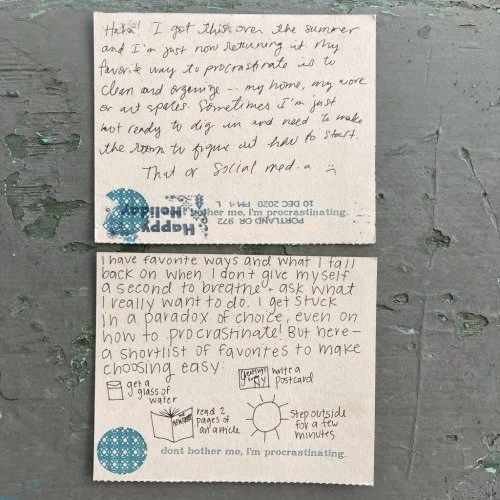 Haha! I got this over the summer
and I'm just now returning it. My
favorite way to procrastinate is to
clean and organize -- my home, my work
or art spaces. Sometimes I'm just
not ready to dig in and need to make
the room to figure out how to start.
That or social media :(
dont bother me, I'm procrastinating.
Happy Holiday
PORTLAND OR 972
10 DEC 2020 PM 4 L
I have favorite ways and what I fall
back on when I don't give myself
a second to breathe + ask what
I really want to do. I get stuck
in a paradox of choice, even on
how to procrastinate! But here—
a shortlist of favorites to make
choosing easy:
get a
glass of
water
Greetings
from
NY
write a
postcard
read 2
pages of
an article
step outside
for a few
minutes
dont bother me, I'm procrastinating.